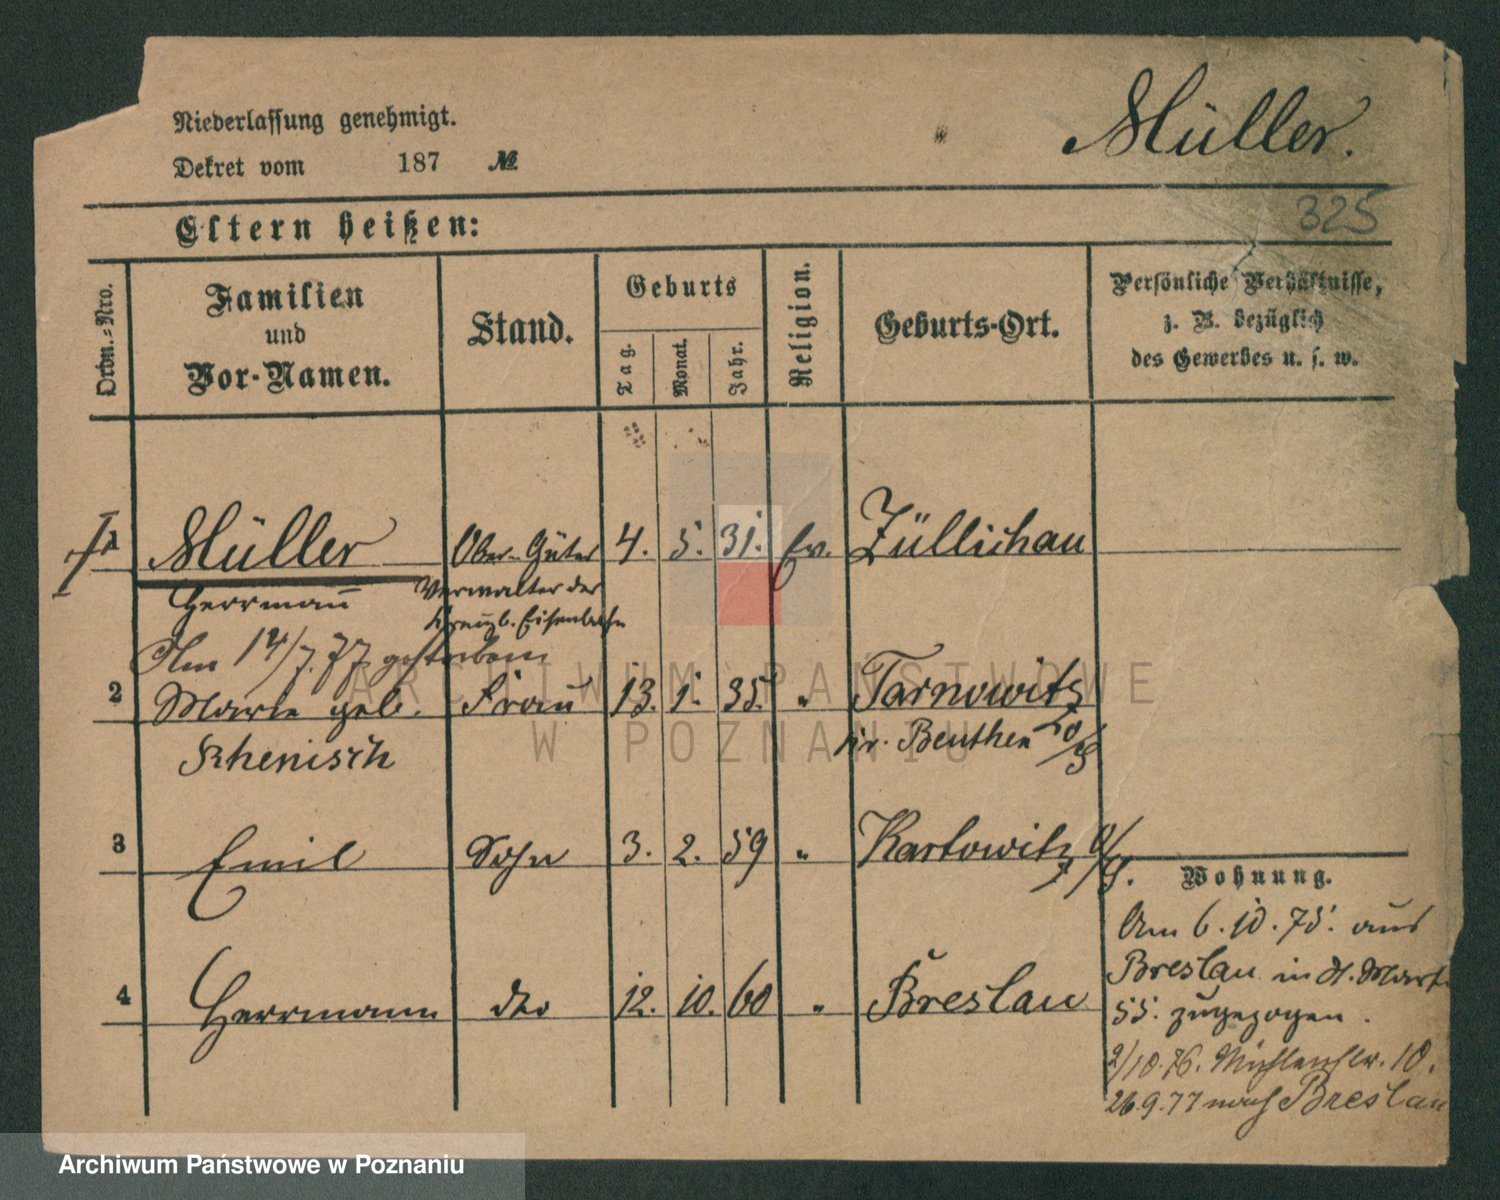 Niederlassung genehmigt.
Müller.
Dekret vom 187 №
325
Eltern heißen:
Ordn.-Nro.
Familien
und
Vor-Namen.
Stand.
Geburts
Tag.
Monat.
Jahr.
Religion.
Geburts-Ort.
Persönliche Verhältnisse,
z. B. bezüglich
des Gewerbes u. s. w.
1 Müller Ober-Güter 4. 5. 31. Ev. Züllichau
Herrmann Verwalter der
Kreuzb. Eisenbahn
Am 14/7.77 gestorben
2 Marie geb. Frau 13. 1. 35. " Tarnowitz
Rhenisch Kr. Beuthen O/S
3 Emil Sohn 3. 2. 59 " Kattowitz O/S.
Wohnung.
Am 6. 10. 75. aus
Breslau in St. Mart.
4 Herrmann dto 12. 10. 60 " Breslau
55. zugezogen.
2/10.76. Mühlenstr. 10.
26.9.77 nach Breslau
ARCHIWUM PAŃSTWOWE
W POZNANIU
Archiwum Państwowe w Poznaniu